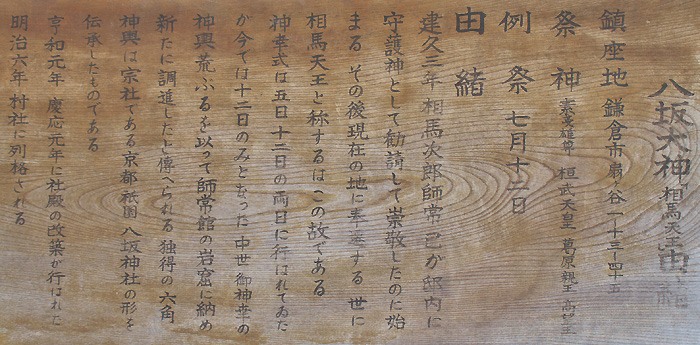 八坂大神 相馬天王 由緒
鎮座地 鎌倉市扇ヶ谷一ー十三ー四十五
祭神 素戔雄尊 桓武天皇 葛原親王 高望王
例祭 七月十二日
由緒
建久三年 相馬次郎師常 己が邸内に
守護神として勧請して崇敬したのに始
まる その後現在の地に奉遷する 世に
相馬天王と称するはこの故である
神幸式は五日 十二日の両日に行はれてゐた
が今では十二日のみとなった 中世 御神輿の
神輿荒ぶるを以って師常館の岩窟に納め
新たに調進したと傳へられる 独得の六角
神輿は宗社である京都祇園 八坂神社の形を
伝承したものである
享和元年 慶応元年に社殿の改築が行はれた
明治六年 村社に列格される